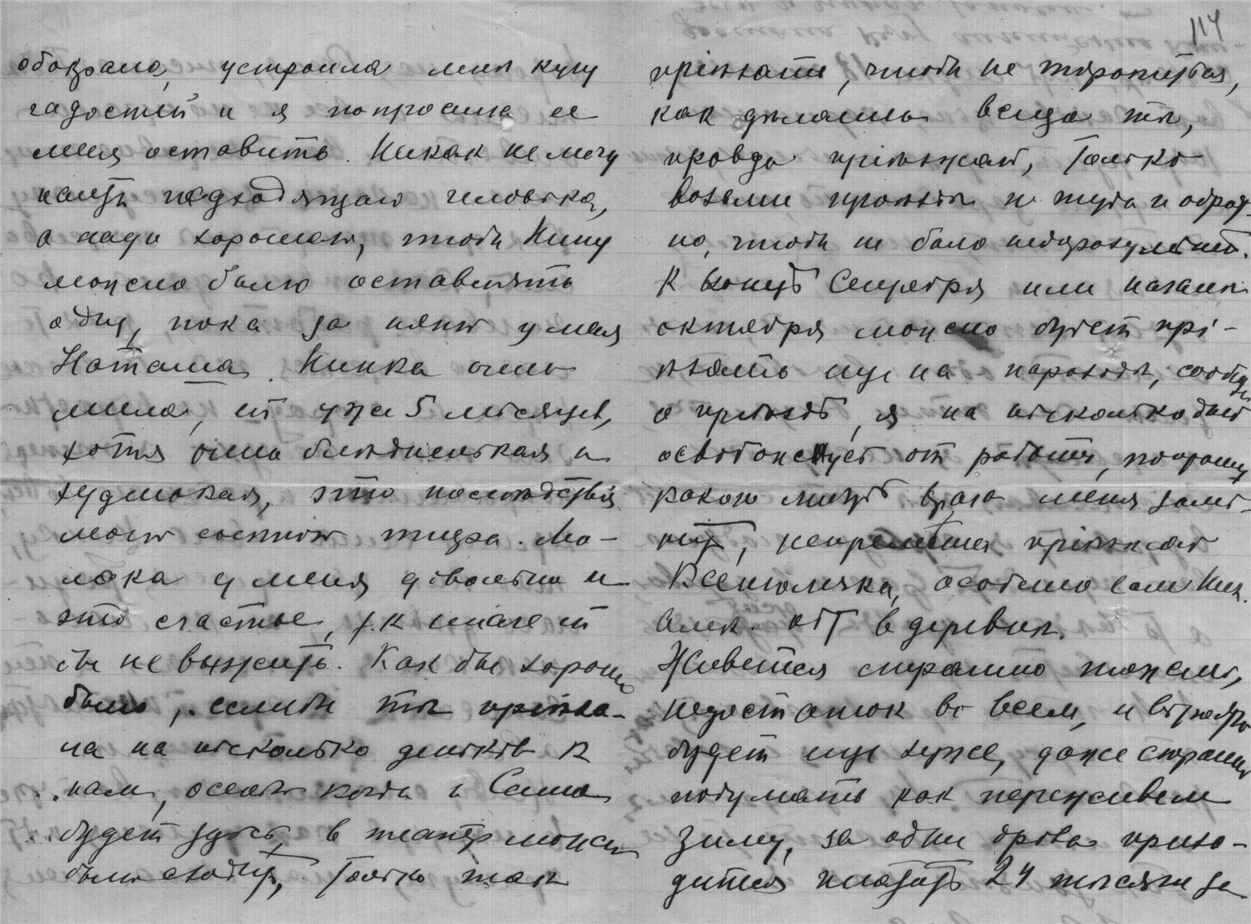 114
обокрала, устроила мне кучу
гадостей и я попросила ее
меня оставить. Никак не могу
найти подходящаго человека,
а надо хорошаго, чтобы Нину
можно было оставлять
одну, пока за няню у меня
Наташа. Нинка очень
мила, ей уже 5 месяцев,
хотя очень бледненькая и
худенькая, это последствия
моего сыпного тифа. Мо-
лока у меня довольно и
это счастье, т.к. иначе ей
бы не выжить. Как бы хорошо
было, если бы ты приеха-
ла на несколько деньков к
нам, осенью когда и Сеша
будет здесь, в театр можно
было сходить, только так
приехать, чтобы не торопиться,
как делаешь всегда ты,
правда приезжай, только
возьми пропуск и туда и обрат-
но, чтобы не было недоразумений.
К концу Сентября или начале
октября можно будет прі-
ехать еще на пароходе, сообщи
о приезде, я на несколько дней
освобожусь от работы, попрошу
какого нибудь врача меня заме-
нить, непременно приезжай
Ксенюлечка, особенно если Ник.
Алек. в деревне.
Живется страшно тяжело,
недостаток во всем, и впереди
будет еще хуже, даже страшно
подумать как переживем
зиму, за одни дрова прихо-
дится платить 24 тысячи за